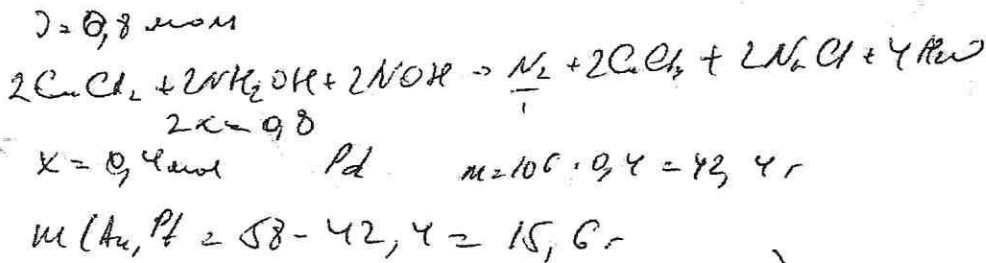 ν = 0,8 моль
2CuCl₂ + 2NH₂OH + 2NaOH → N₂ + 2CuCl + 2NaCl + 4H₂O
2x = 0,8
x = 0,4 моль Pd m = 106 · 0,4 = 42,4 г
m(Au, Pt = 58 - 42,4 = 15,6 г